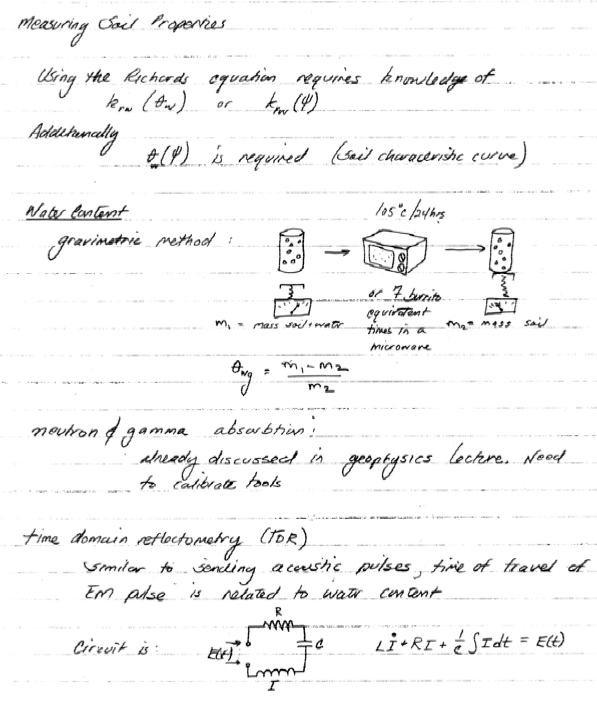 Measuring Soil Properties
Using the Richards equation requires knowledge of
k_rw (θ_w) or k_rw (ψ)
Additionally
θ_w(ψ) is required (soil characteristic curve)
Water Content
105°C/24hrs
gravimetric method :
or 7 burrito
equivalent
times in a
microwave
m₁ = mass soil+water
m₂ = mass soil
θ_wg = (m₁ - m₂) / m₂
neutron & gamma absorbtion:
already discussed in geophysics lecture. Need
to calibrate tools
time domain reflectometry (TDR)
similar to sending acoustic pulses, time of travel of
EM pulse is related to water content
Circuit is :
R
E(t)
C
I
Lİ + RI + 1/C ∫Idt = E(t)